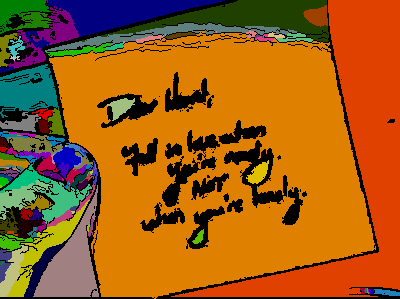 Dear Heart,
fall in love when
you're ready.
Not
when you're lonely.